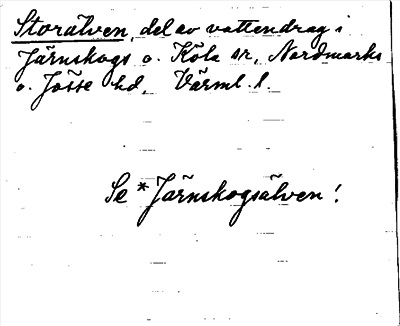 Storälven, del av vattendrag i
Järnskogs o. Köla sr, Nordmarks
o. Jösse hd, Värml. l.
Se *Järnskogsälven!